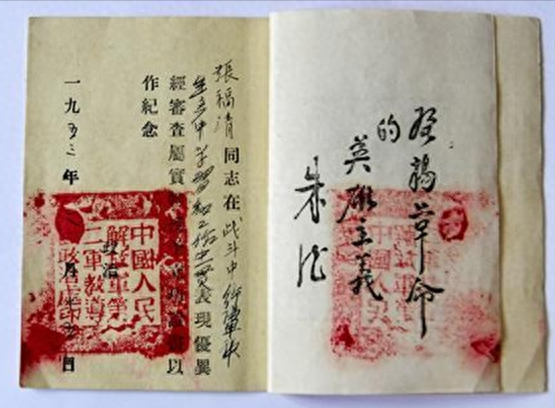 發揚革命
的
英雄主義
朱德
張福清同志在战斗中行軍中
生产中学習和工作中表現優異
經審查屬實功以
作紀念
一九五三年月十五日
中國人民
解放軍第
二軍教導